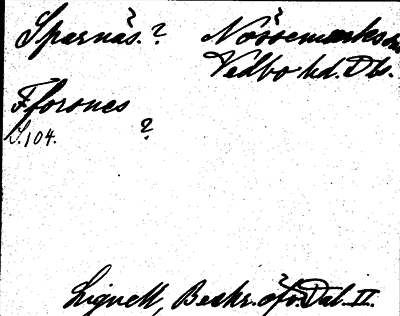 Sparnäs. ? Nössemarks sn
Vedbo hd. Dls.
Fforsnes
S. 104. ?
Lignell, Beskr. öfv. Dal. II.